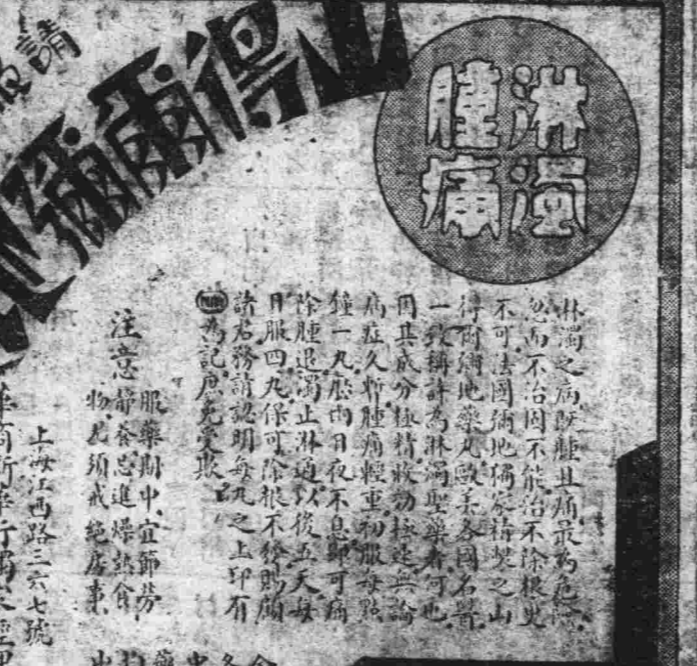 淋濁
腫痛
淋濁之病既腫且痛最為危險
忽而不治固不能治不除根更
不可法國彌地獨家精製之山
得爾彌地藥丸歐美各國名醫
一致稱許為淋濁聖藥者何也
因其成分極精收効極速無論
病症久暫腫痛輕重初服每點
鐘一丸歷兩日夜不息即可痛
除腫退濁止淋通以後五天每
日服四丸保可除根不發賜顧
諸君務請認明每丸之上印有
為記庶免受欺
注意
服藥期中宜節勞
靜養忌進燥熱食
物尤須戒絕房事
上海江西路三六七號
請
得爾彌地